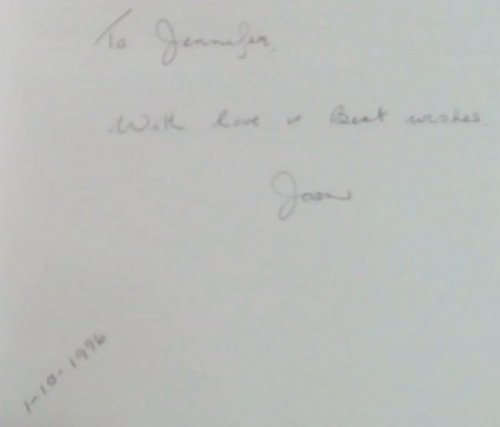 To Jennifer,
With love & Best wishes
Joan
1-10-1996